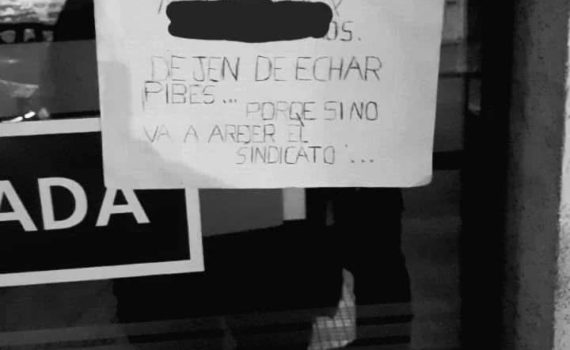 OS.
DEJEN DE ECHAR
PIBES... PORQE SI NO
VA A ARDER EL
SINDICATO...
ADA